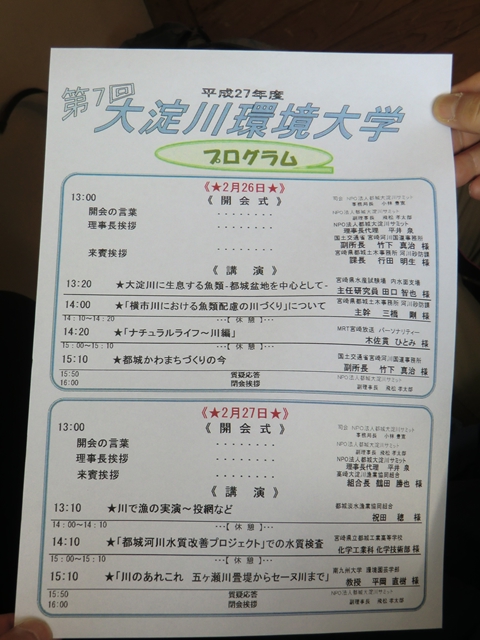 平成27年度
第7回
大淀川環境大学
プログラム
《★2月26日★》
13:00 《 開 会 式 》 司会 NPO法人都城大淀川サミット
事務局長 小林
開会の言葉 ・・・・・・・・ NPO法人都城大淀川サミット
副理事長
理事長挨拶 ・・・・・・・・ NPO法人都城大淀川サミット
理事長代理 平井 泉
国土交通省 宮崎河川国道事務所
副所長 竹下 真治 様
来賓挨拶 ・・・・・・・・ 宮崎県都城土木事務所 河川砂防課
課長 行田 明生 様
《 講 演 》
13:20 ★大淀川に生息する魚類-都城盆地を中心として- 宮崎県水産試験場 内水面支場
主任研究員 田口 智也 様
14:00 ★「横市川における魚類配慮の川づくり」について 宮崎県都城土木事務所 河川砂防課
主幹 三橋 剛 様
14:10~14:20 ---【 休 憩 】---
14:20 ★「ナチュラルライフ~川編」 MRT宮崎放送 パーソナリティー
木佐貫 ひとみ 様
15:00~15:10 ---【 休 憩 】---
15:10 ★都城かわまちづくりの今 国土交通省 宮崎河川国道事務所
副所長 竹下 真治 様
15:50 質疑応答 NPO法人都城大淀川サミット
16:00 閉会挨拶 副理事長
《★2月27日★》
13:00 《 開 会 式 》 司会 NPO法人都城大淀川サミット
事務局長 小林
開会の言葉 ・・・・・・・・ NPO法人都城大淀川サミット
副理事長
理事長挨拶 ・・・・・・・・ NPO法人都城大淀川サミット
理事長代理 平井 泉
来賓挨拶 ・・・・・・・・ 漁業協同組合
組合長 勝也 様
《 講 演 》
13:10 ★川で漁の実演~投網など 都城淡水漁業協同組合
祝田 穂 様
14:00~14:10 ---【 休 憩 】---
14:10 ★「都城河川水質改善プロジェクト」での水質検査 宮崎県立都城工業高等学校
化学工業科 化学技術部 様
15:00~15:10 ---【 休 憩 】---
15:10 ★「川のあれこれ 五ヶ瀬川畳堤からセーヌ川まで」 南九州大学 環境園芸学部
教授 平岡 直樹 様
15:50 質疑応答 NPO法人都城大淀川サミット
16:00 閉会挨拶 副理事長